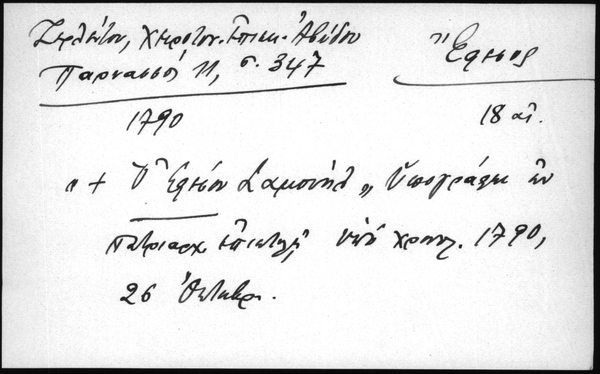 Ζερλέντου, Χειροτον. Ἐπισκ. Ἀβύδου
Παρνασσός 11, σ. 347
Ἔφεσος
1790
18 αἰ.
"+ Ὁ Ἐφέσου Σαμουήλ" Ὑπογράφει ἐν
πατριαρχ. ἐπιστολῇ ὑπὸ χρονολ. 1790,
26 Ὀκτωβρ.